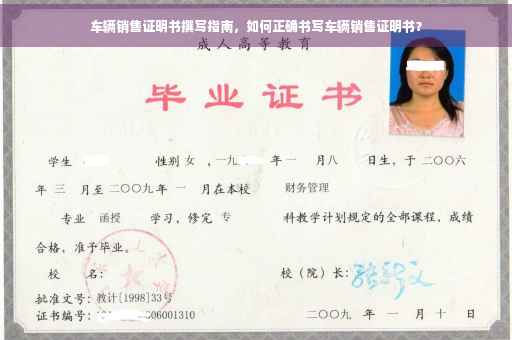 车辆销售证明书撰写指南，如何正确书写车辆销售证明书？
成人高等教育
毕业证书
学生 性别 女 ，一九 年 一 月八 日生，于 二〇〇六
年 三 月至 二〇〇九 年 一 月在本校 财务管理
专业 函授 学习，修完 专 科教学计划规定的全部课程，成绩
合格，准予毕业。
校 名： 校（院）长：
批准文号：教计[1998]33号
证书编号： 06001310 二〇〇九 年 一 月 十 日